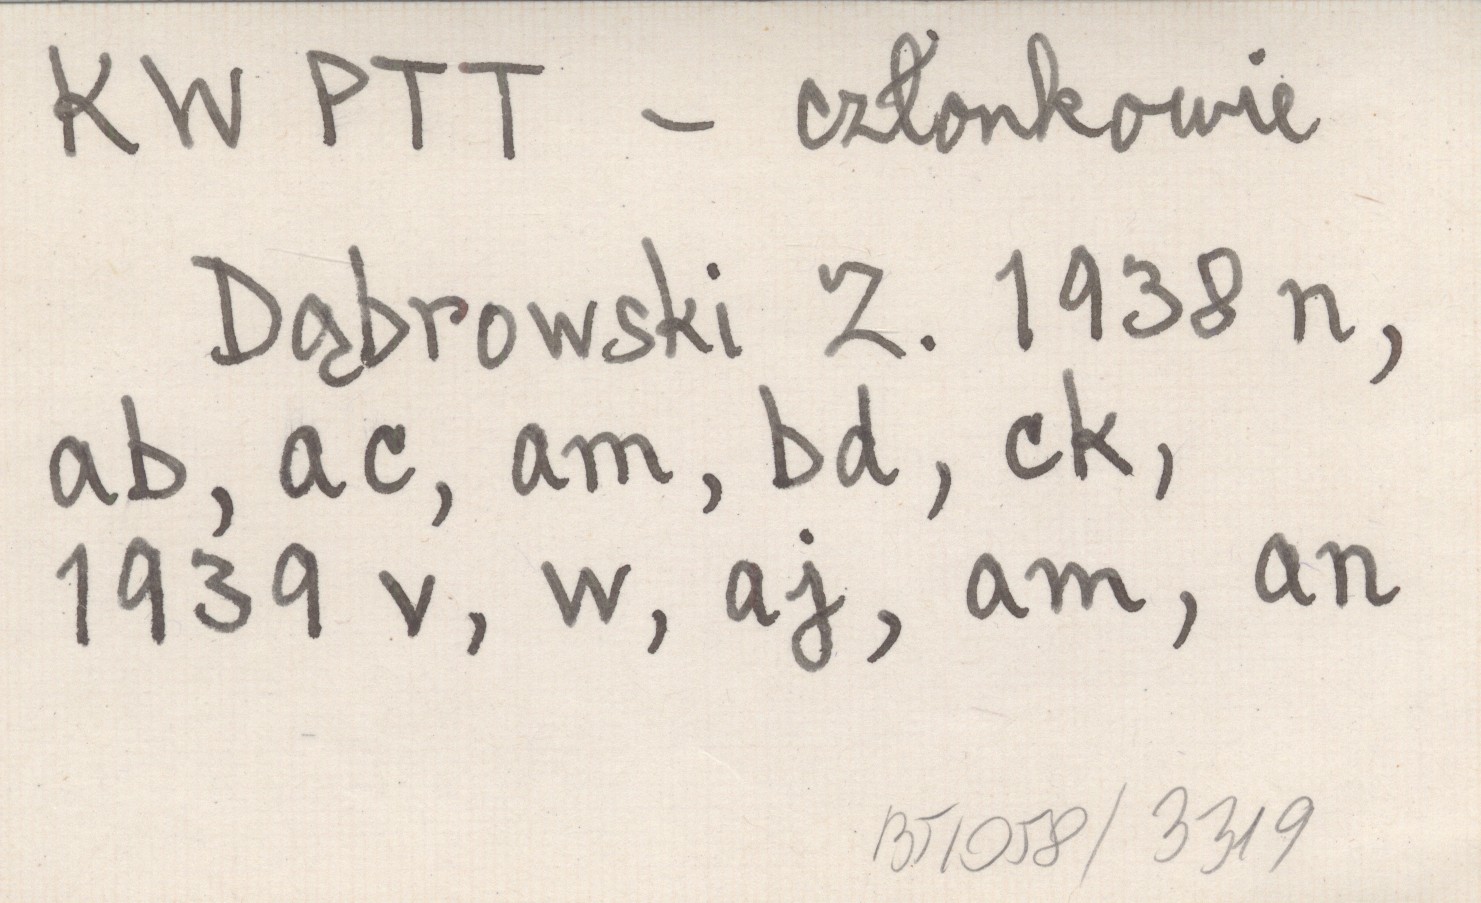 KW PTT - członkowie
Dąbrowski Z. 1938 n,
ab, ac, am, bd, ck,
1939 v, w, aj, am, an
BT1058/3319